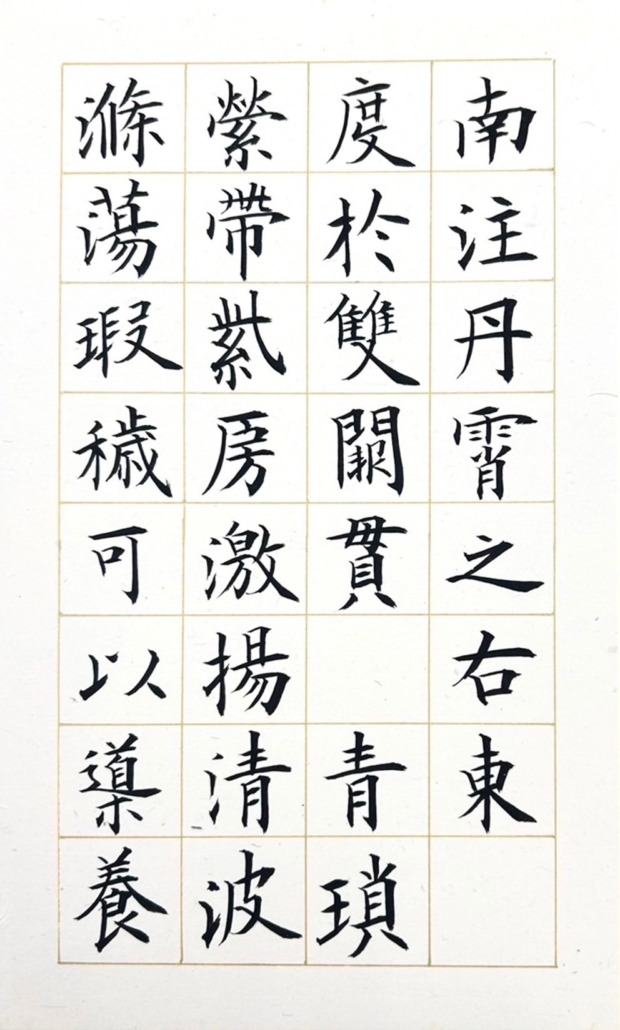 南注丹霄之右東
度於雙闕貫　青瑣
縈帶紫房激揚清波
滌蕩瑕穢可以導養